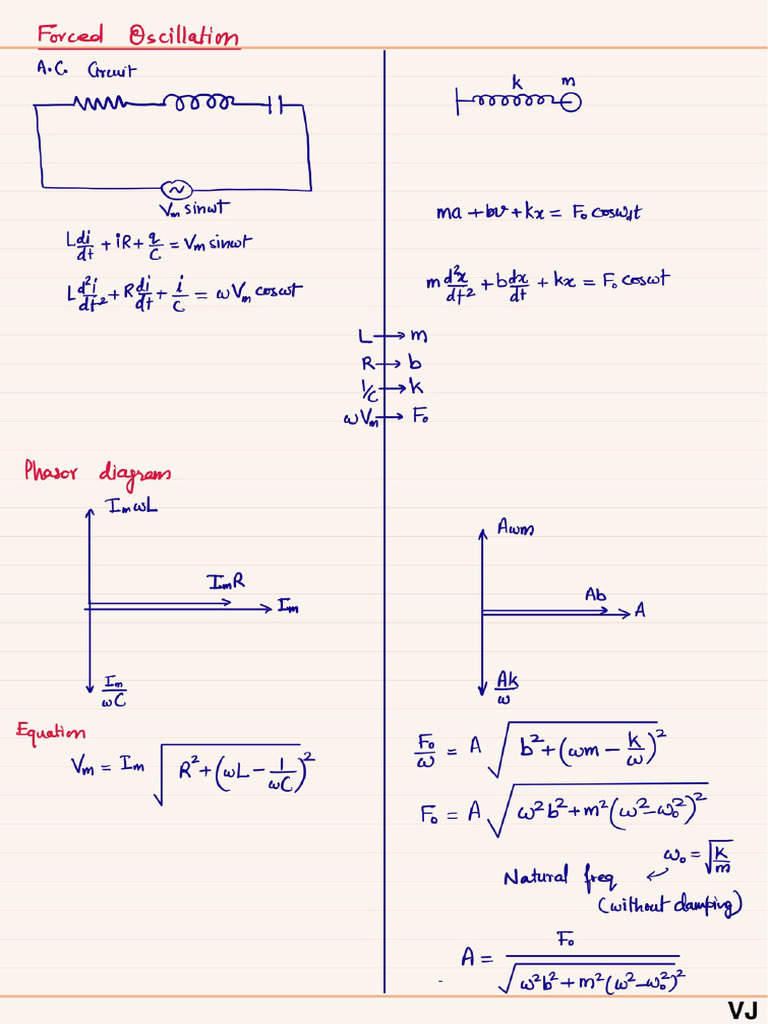 Forced Oscillation
A.C. Circuit
V_m sinωt
L di/dt + iR + q/C = V_m sinωt
L d²i/dt² + R di/dt + i/C = ω V_m cosωt
k m
ma + bv + kx = F₀ cosω_d t
m d²x/dt² + b dx/dt + kx = F₀ cosωt
L → m
R → b
1/C → k
ωV_m → F₀
Phasor diagrams
I_m ωL
I_m R
I_m
I_m/ωC
Aωm
Ab
A
Ak/ω
Equation
V_m = I_m √(R² + (ωL − 1/ωC)²)
F₀/ω = A √(b² + (ωm − k/ω)²)
F₀ = A √(ω²b² + m²(ω² − ω₀²)²)
ω₀ = √(k/m)
Natural freq
(without damping)
A = F₀/√(ω²b² + m²(ω² − ω₀²)²)
VJ